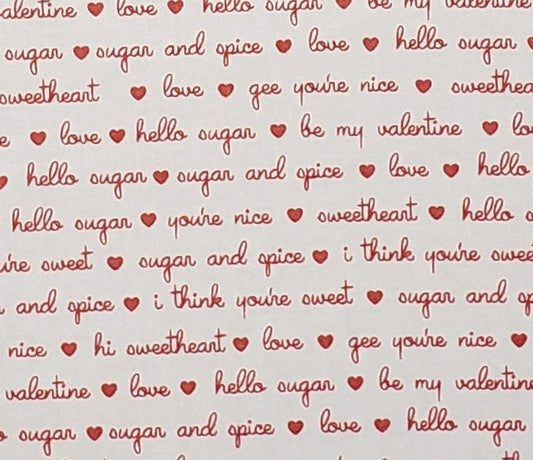 valentine ♥ love ♥ hello sugar ♥ be my valentine
sugar ♥ sugar and spice ♥ love ♥ hello sugar ♥
sweetheart ♥ love ♥ gee you're nice ♥ sweethea
e ♥ love ♥ hello sugar ♥ be my valentine ♥ lo
♥ hello sugar ♥ sugar and spice ♥ love ♥ hello
hello sugar ♥ you're nice ♥ sweetheart ♥ hello s
're sweet ♥ sugar and spice ♥ i think you're swee
and spice ♥ i think you're sweet ♥ sugar and sp
nice ♥ hi sweetheart ♥ love ♥ gee you're nice ♥
valentine ♥ love ♥ hello sugar ♥ be my valentine
sugar ♥ sugar and spice ♥ love ♥ hello sugar